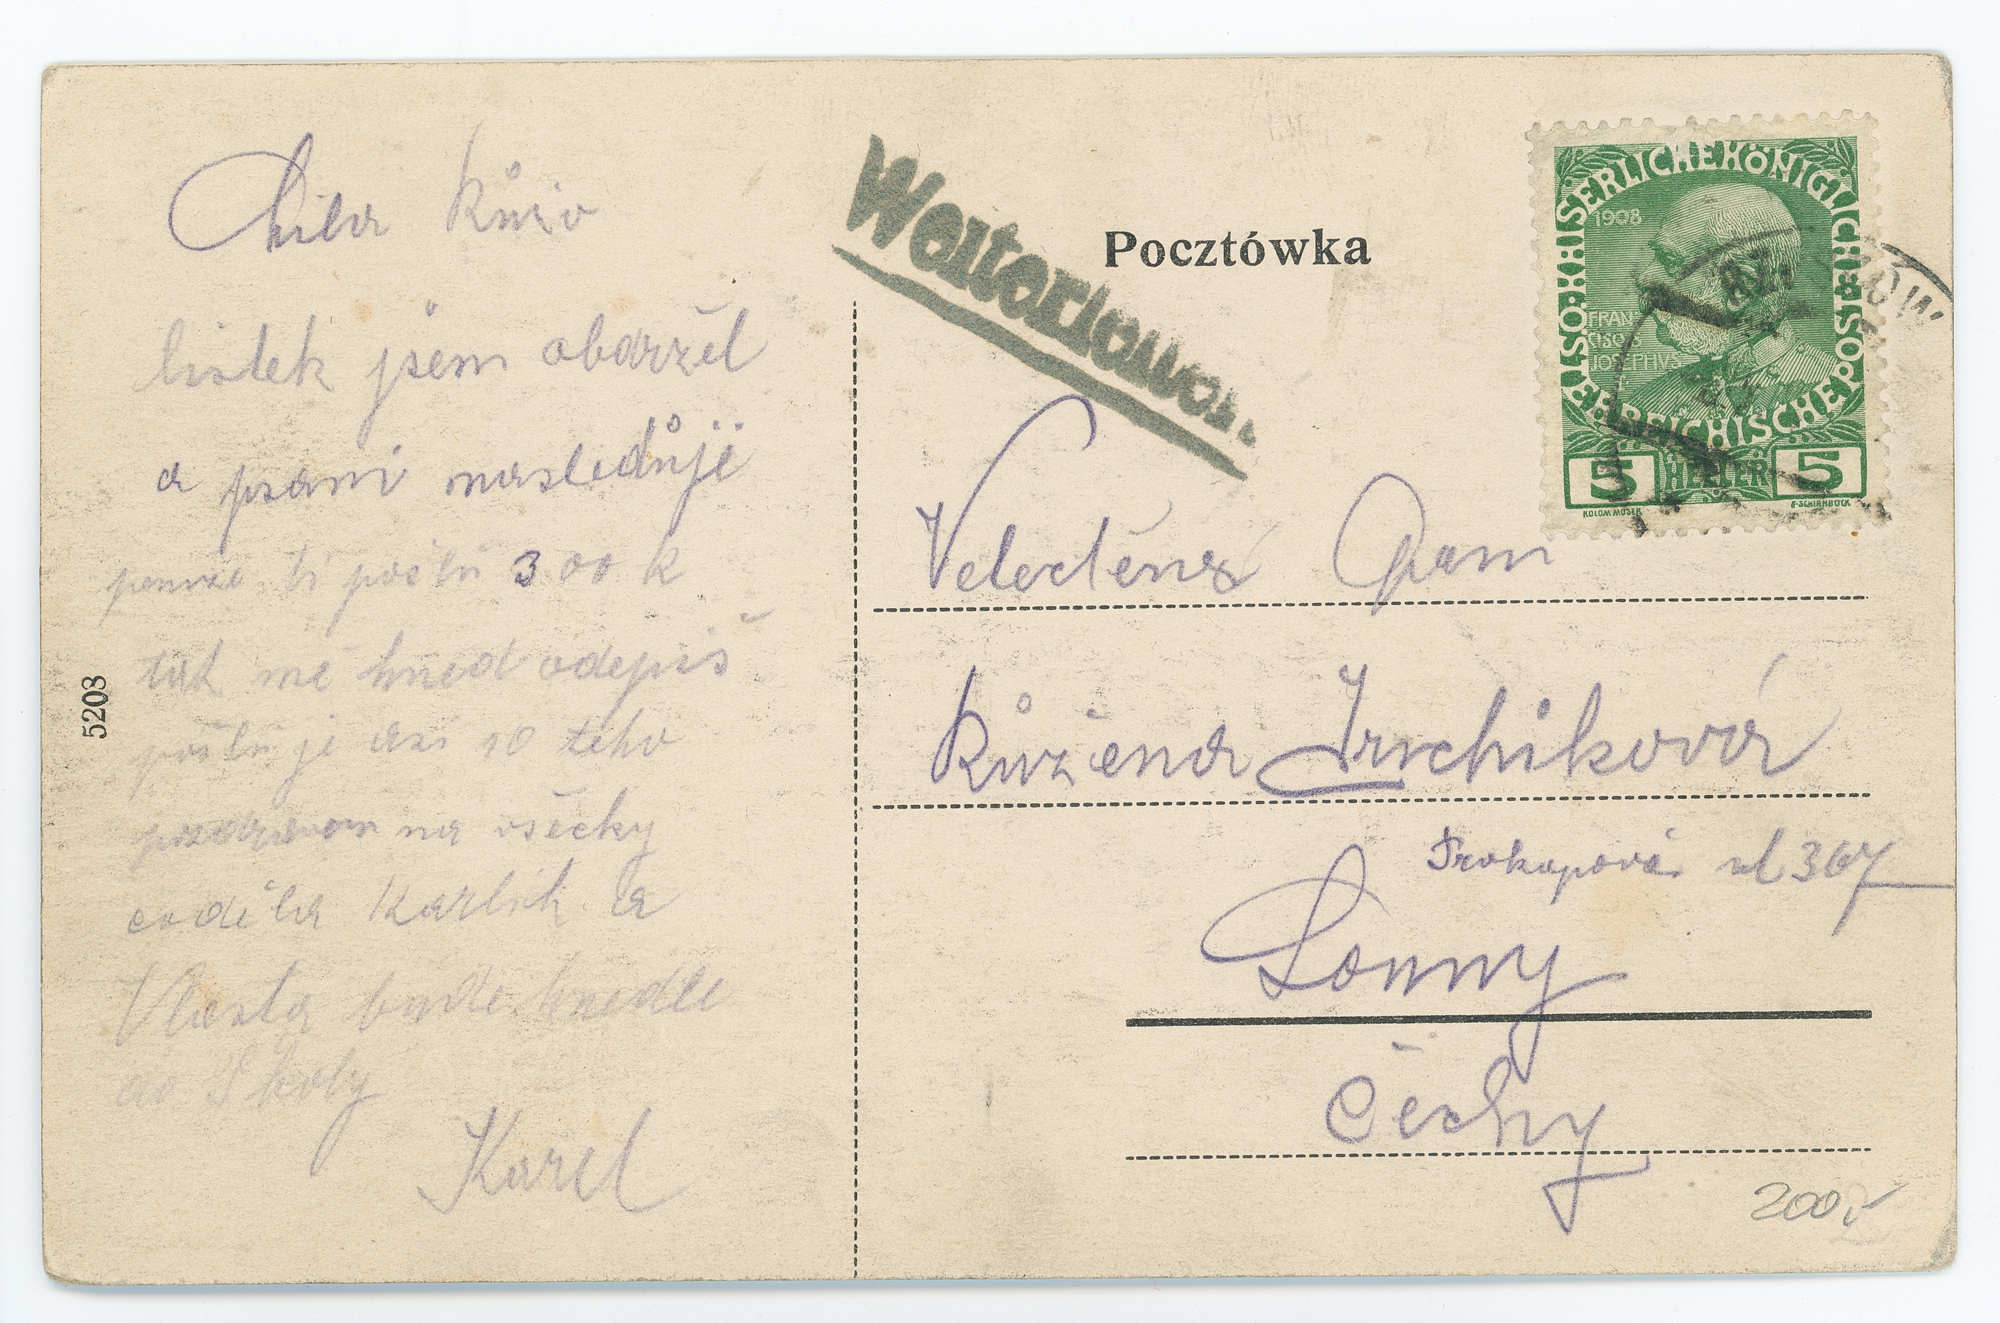 Milá Růžo
lístek jsem obdržel
a psaní následůje
peníze ti pošlu 300 k
tak mě hned odepiš
pošlu je asi 10 teho
pozdravom na všecky
co děla Karlik a
Vlasta bude hnedle
do Školy
Karel
5203
Pocztówka
KAISERLICHE KÖNIGLICHE
ÖSTERREICHISCHE POST
1908
FRAN
CISCVS
IOSEPHVS
5 HELLER 5
KOLOM. MOSER
F. SCHIRNBÖCK
Velectěná Paní
Růžena
Prokopová ul 367
Louny
Čechy
200,-